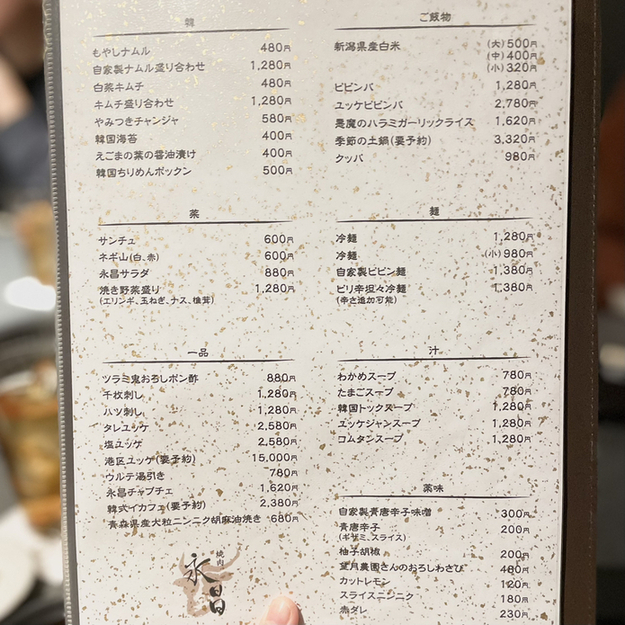 韓
もやしナムル 480円
自家製ナムル盛り合わせ 1,280円
白菜キムチ 480円
キムチ盛り合わせ 1,280円
やみつきチャンジャ 580円
韓国海苔 400円
えごまの葉の醤油漬け 400円
韓国ちりめんポックン 500円
菜
サンチュ 600円
ネギ山(白、赤) 600円
永昌サラダ 880円
焼き野菜盛り 1,280円
(エリンギ、玉ねぎ、ナス、椎茸)
一品
ツラミ鬼おろしポン酢 880円
千枚刺し 1,280円
ハツ刺し 1,280円
タレユッケ 2,580円
塩ユッケ 2,580円
港区ユッケ(要予約) 15,000円
ウルテ湯引き 780円
永昌チャプチェ 1,620円
韓式イカフェ(要予約) 2,380円
青森県産大粒ニンニク胡麻油焼き 680円
焼肉
永昌
ご飯物
新潟県産白米 (大)500円
(中)400円
(小)320円
ビビンバ 1,280円
ユッケビビンバ 2,780円
悪魔のハラミガーリックライス 1,620円
季節の土鍋(要予約) 3,320円
クッパ 980円
麺
冷麺 1,280円
冷麺 (小)980円
自家製ビビン麺 1,380円
ピリ辛坦々冷麺 1,380円
(辛さ追加可能)
汁
わかめスープ 780円
たまごスープ 780円
韓国トックスープ 1,280円
ユッケジャンスープ 1,280円
コムタンスープ 1,280円
薬味
自家製青唐辛子味噌 300円
青唐辛子 200円
(ギザミ、スライス)
柚子胡椒 200円
望月農園さんのおろしわさび 480円
カットレモン 120円
スライスニンニク 180円
赤ダレ 230円